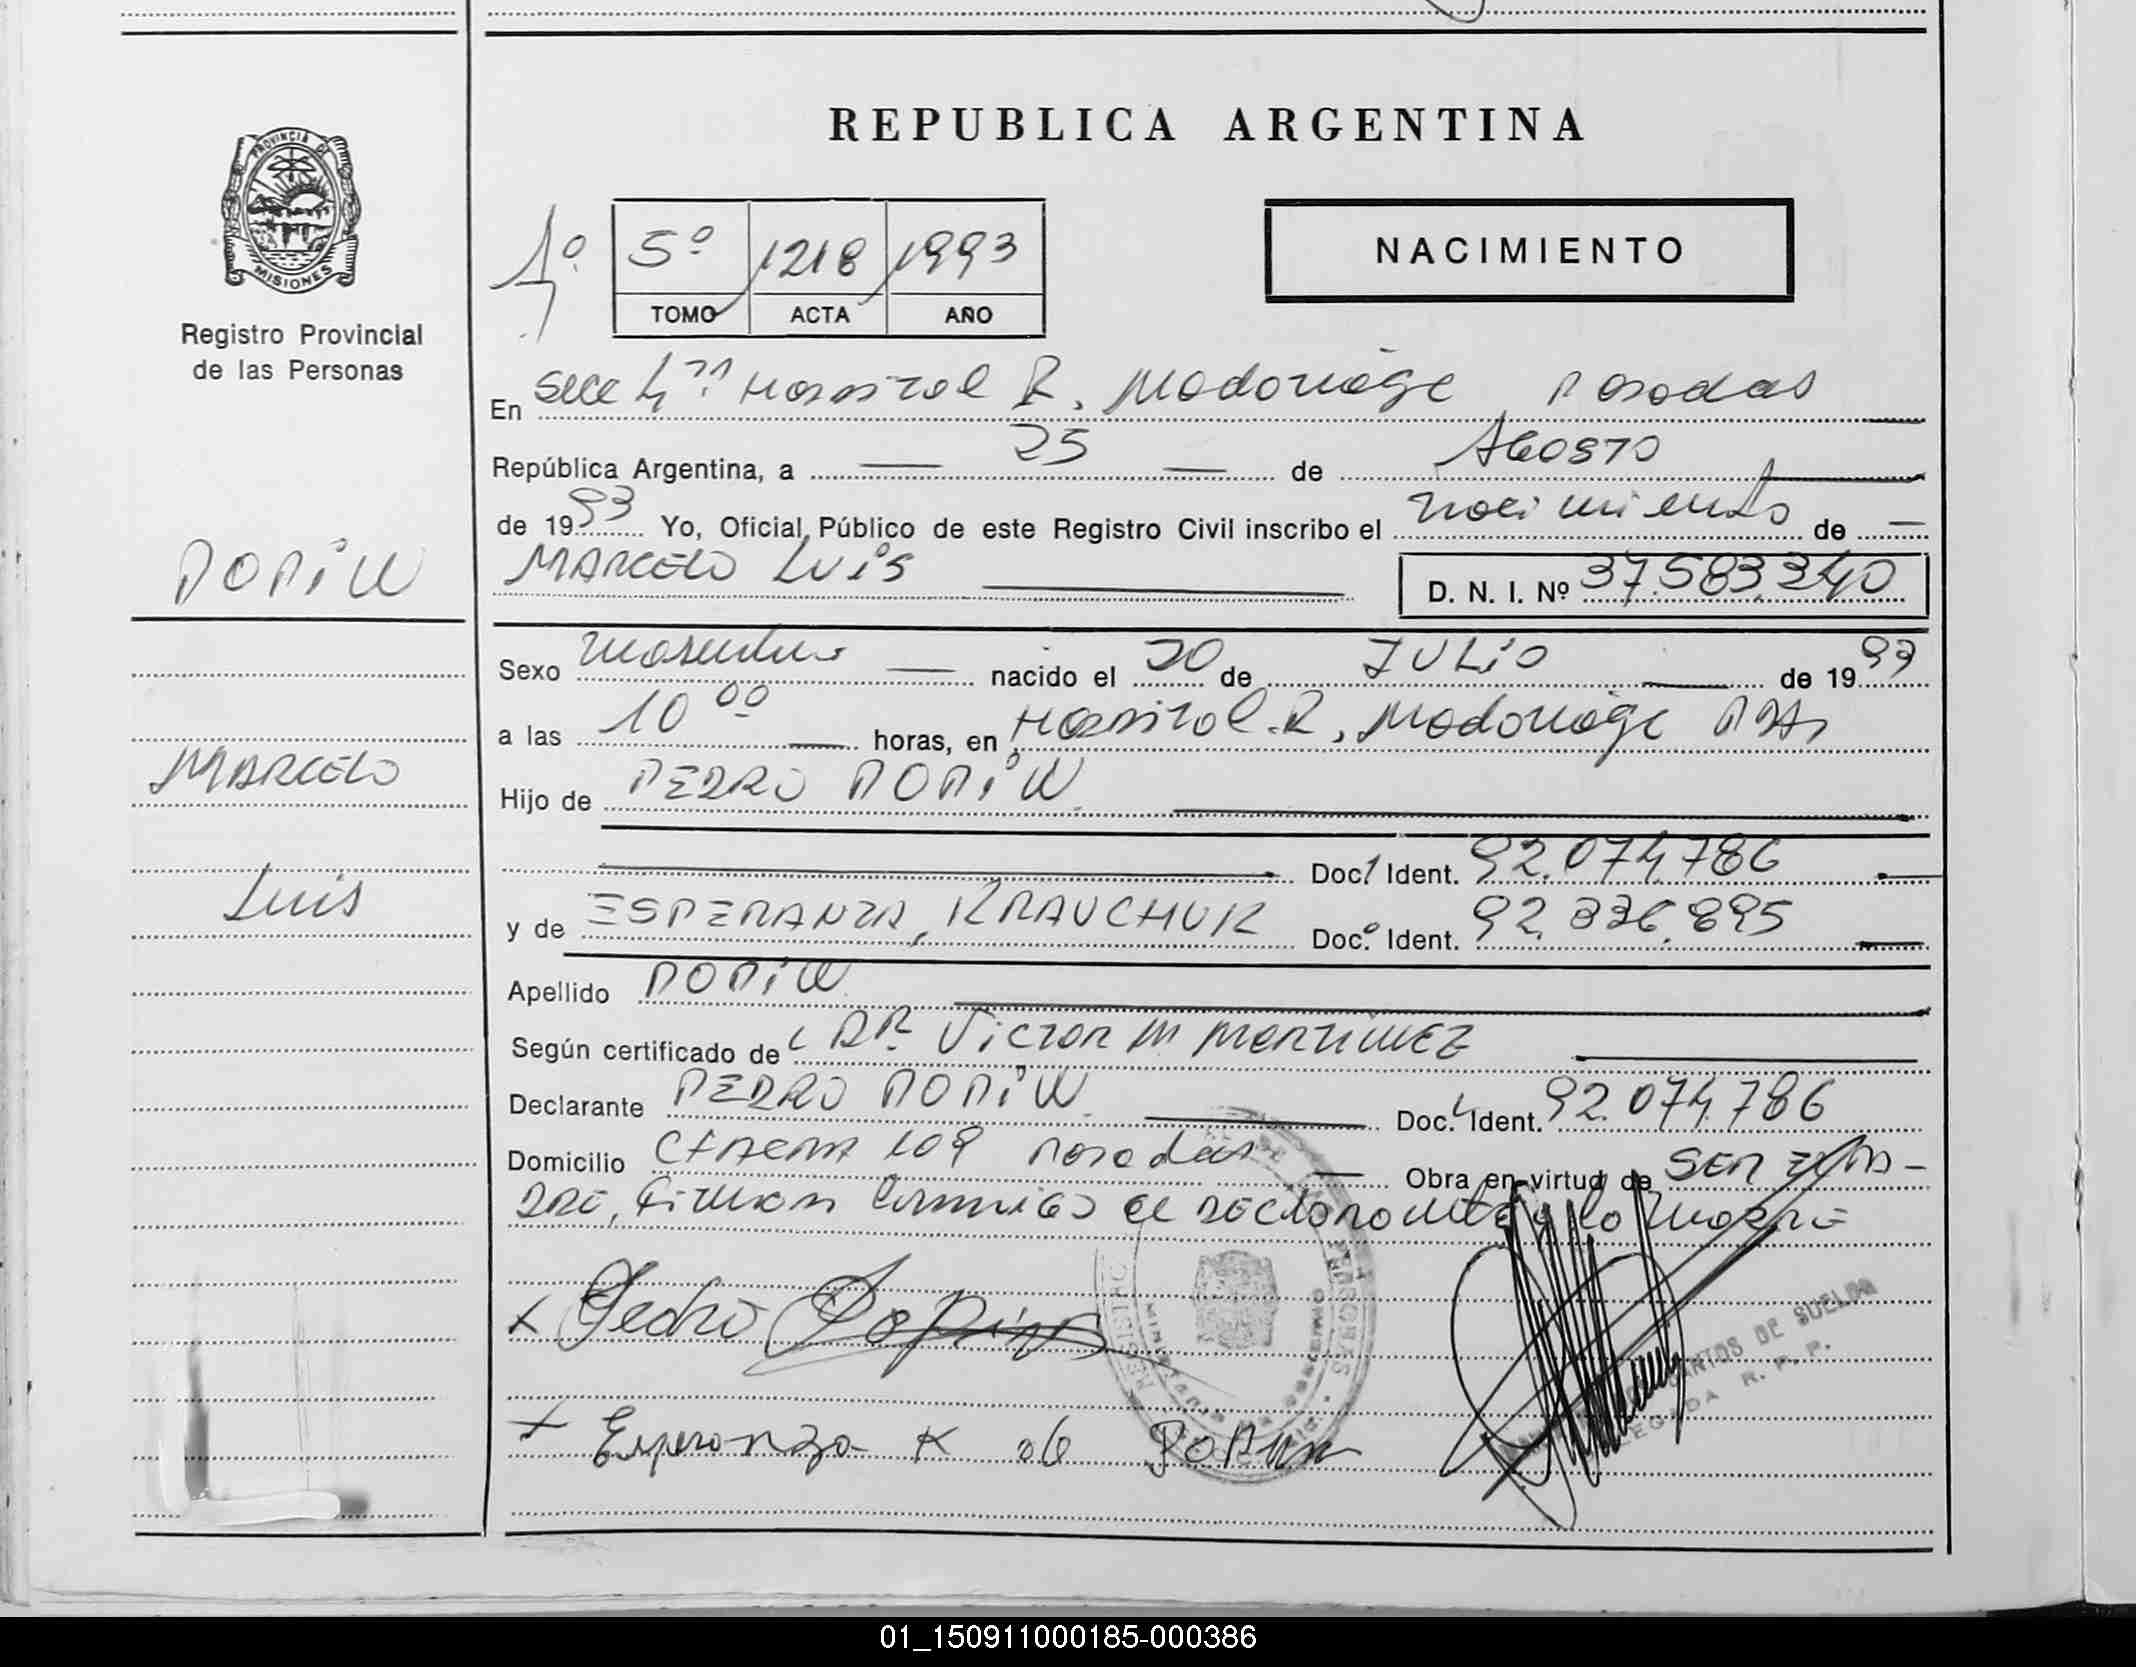 REPUBLICA ARGENTINA
PROVINCIA DE
MISIONES
Registro Provincial
de las Personas
1º 5º 1218 1993
TOMO ACTA AÑO
NACIMIENTO
En Secc 4ª Hospital R. Madariaga Posadas
República Argentina, a 25 de Agosto
de 1993 Yo, Oficial Público de este Registro Civil inscribo el nacimiento de
POPIW
MARCELO LUIS
D. N. I. Nº 37.583.340
Sexo masculino nacido el 20 de JULIO de 1993
a las 10 00 horas, en Hospital R. Madariaga Pdas
MARCELO
Hijo de PEDRO POPIW
Doc. Ident. 92.074.786
Luis
y de ESPERANZA, KRAUCHUK Doc. Ident. 92.336.895
Apellido POPIW
Según certificado de DR. Victor M Martinez
Declarante PEDRO POPIW Doc. Ident. 92.074.786
Domicilio 109 Posadas Obra en virtud de SER EL PA-
DRE, Firman conmigo el declarante y la madre
x Pedro Popiw
x Esperanza K de Popiw
SANTOS DE SUELDO
DELEGADA R. P. P.
01_150911000185-000386